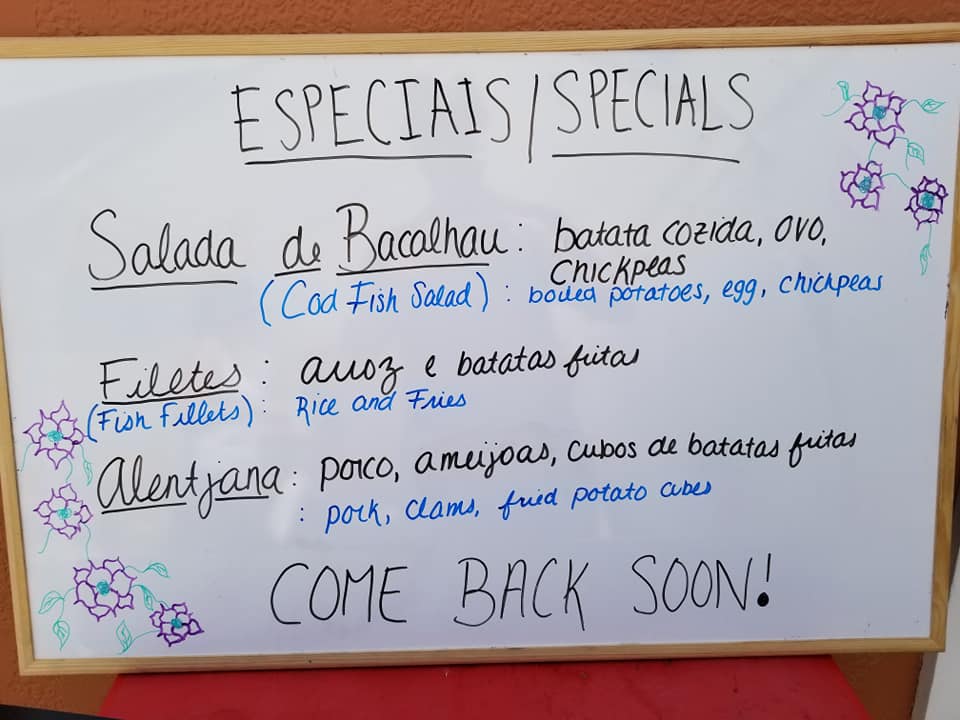 ESPECIAIS/SPECIALS
Salada de Bacalhau: batata cozida, ovo,
chickpeas
(Cod Fish Salad): boiled potatoes, egg, chickpeas
Filetes: arroz e batatas fritas
(Fish Fillets): Rice and Fries
Alentjana: porco, ameijoas, cubos de batatas fritas
: pork, clams, fried potato cubes
COME BACK SOON!